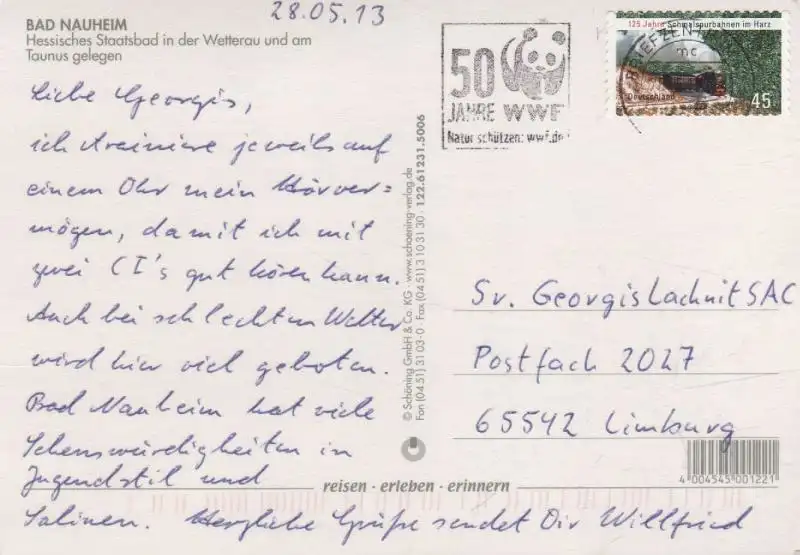 28.05.13
BAD NAUHEIM
Hessisches Staatsbad in der Wetterau und am
Taunus gelegen
50
JAHRE WWF
Natur schützen: wwf.de
BRIEFZENTRUM
mc
125 Jahre Schmalspurbahnen im Harz
Deutschland
45
Liebe Georgis,
ich trainiere jeweils auf
einem Ohr mein Hörver=
mögen, damit ich mit
zwei CI's gut hören kann.
Auch bei schlechtem Wetter
wird hier viel geboten.
Bad Nauheim hat viele
Sehenswürdigkeiten in
Jugendstil und
Salinen. Herzliche Grüße sendet Dir Willfried
© Schöning GmbH & Co. KG · www.schoening-verlag.de
Fon (0451) 3103-0 · Fax (0451) 3103130 · 122.61231.5006
Sr. Georgis Lachnit SAC
Postfach 2027
65542 Limburg
4 004545 001221
reisen · erleben · erinnern